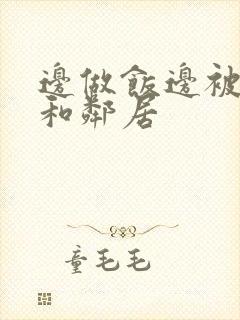 邊做飯邊被
和鄰居
童毛毛